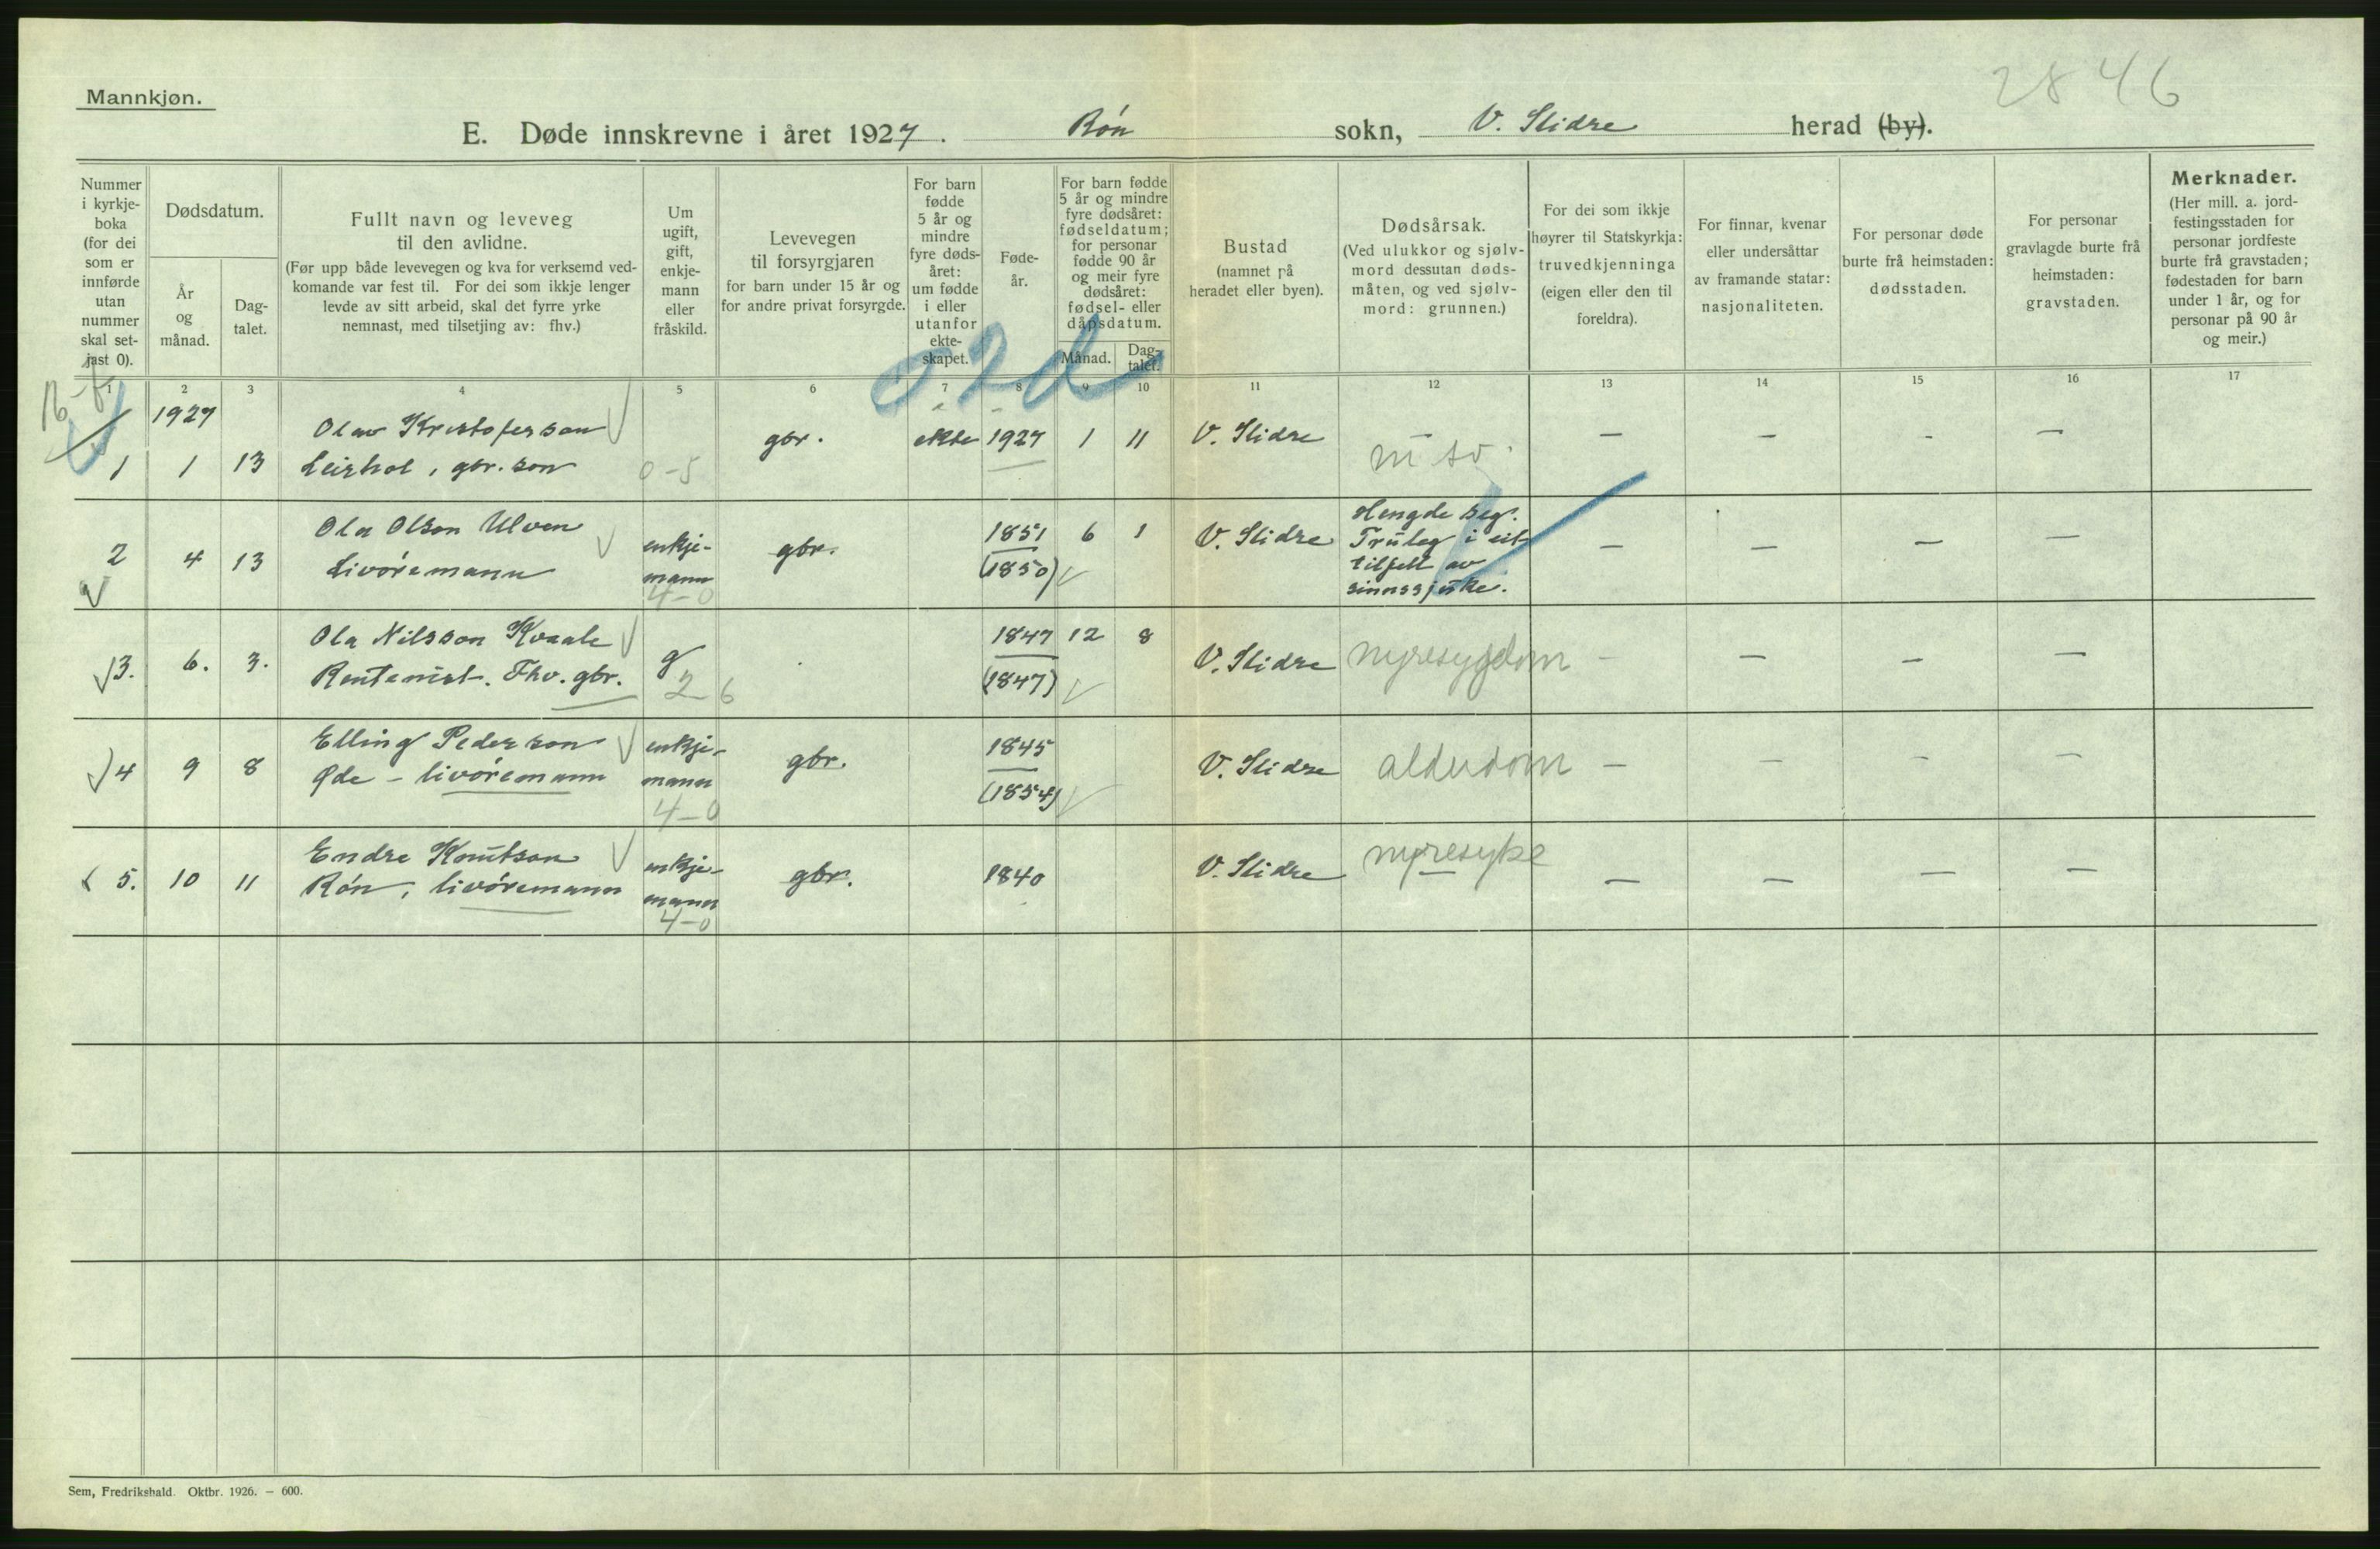 2846
Mannkjøn.
E. Døde innskrevne i året 1927. Røn sokn, V. Slidre herad (by).
Nummer i kyrkjeboka (for dei som er innførde utan nummer skal setjast 0).
Dødsdatum.
År og månad.
Dagtalet.
Fullt navn og leveveg til den avlidne.
(Før upp både levevegen og kva for verksemd vedkomande var fest til. For dei som ikkje lenger levde av sitt arbeid, skal det fyrre yrke nemnast, med tilsetjing av: fhv.)
Um ugift, gift, enkjemann eller fråskild.
Levevegen til forsyrgjaren
for barn under 15 år og for andre privat forsyrgde.
For barn fødde 5 år og mindre fyre dødsåret: um fødde i eller utanfor ekteskapet.
Fødeår.
For barn fødde 5 år og mindre fyre dødsåret: fødseldatum; for personar fødde 90 år og meir fyre dødsåret: fødsel- eller dåpsdatum.
Månad.
Dagtalet.
Bustad
(namnet på heradet eller byen).
Dødsårsak.
(Ved ulukkor og sjølvmord dessutan dødsmåten, og ved sjølvmord: grunnen.)
For dei som ikkje høyrer til Statskyrkja: truvedkjenninga (eigen eller den til foreldra).
For finnar, kvenar eller undersåttar av framande statar: nasjonaliteten.
For personar døde burte frå heimstaden: dødsstaden.
For personar gravlagde burte frå heimstaden: gravstaden.
Merknader.
(Her mill. a. jordfestingsstaden for personar jordfeste burte frå gravstaden; fødestaden for barn under 1 år, og for personar på 90 år og meir.)
1 2 3 4 5 6 7 8 9 10 11 12 13 14 15 16 17
1927
Olav Kristoferson
1 1 13 Leirhol, gbr. son 0-5 gbr. ekte 1927 1 11 V. Slidre — — - —
Ola Olson Ulven
2 4 13 Livøremann enkjemann 4-0 gbr. 1851 (1850) 6 1 V. Slidre
Hengde seg.
Truleg i eit
tilfell av
sinnssjuke.
— — — —
Ola Nilsson Kvaale
3. 6. 3. Rentenist. Fhv. gbr. g 2 6 1847 (1847) 12 8 V. Slidre nyresygdom — — — —
Elling Pederson
4 9 8 Øde - livøremann enkjemann 4-0 gbr. 1845 (1854) V. Slidre alderdom — — - —
Endre Knutson
5. 10 11 Røn, livøremann enkjemann 4-0 gbr. 1840 V. Slidre nyresyke — — — —
Sem, Fredrikshald. Oktbr. 1926. — 600.